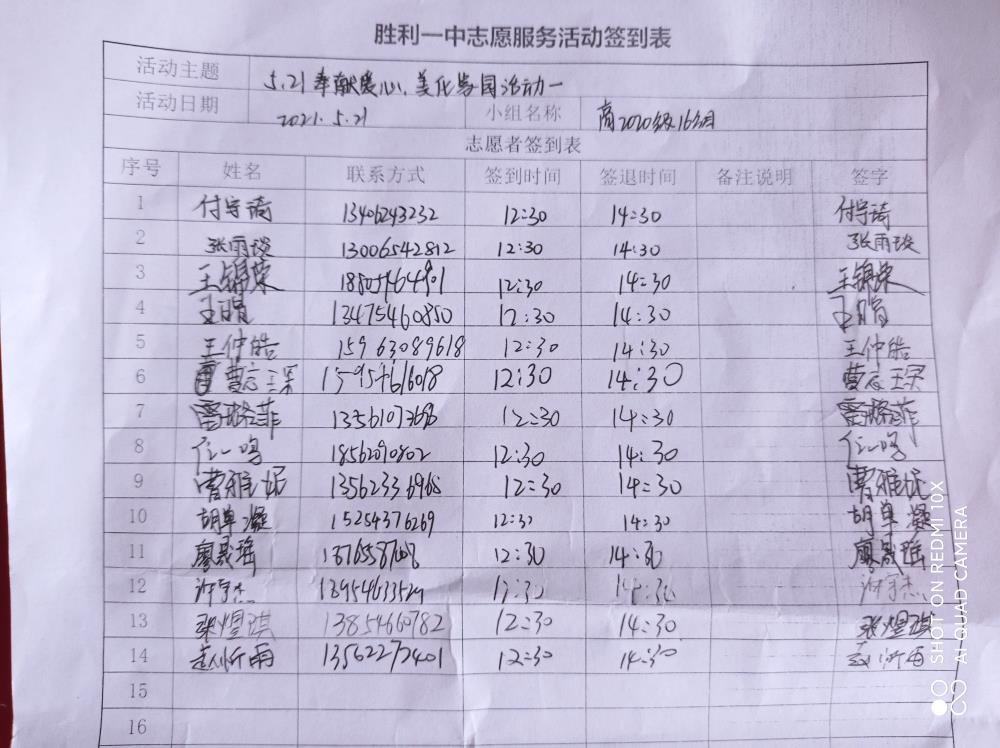 胜利一中志愿服务活动签到表
活动主题 5.21奉献爱心、美化校园活动一
活动日期 2021.5.21 小组名称 高2020级16组
志愿者签到表
序号 姓名 联系方式 签到时间 签退时间 备注说明 签字
1 付宇琦 13406243232 12:30 14:30 付宇琦
2 张雨琰 13006542812 12:30 14:30 张雨琰
3 王锦荣 12:30 14:30 王锦荣
4 13475460850 12:30 14:30
5 王仲皓 15963089618 12:30 14:30 王仲皓
6 曹志琛 12:30 14:30 曹志琛
7 雷璐菲 12:30 14:30 雷璐菲
8 任一鸣 18562090802 12:30 14:30 任一鸣
9 曹雅妮 13562336968 12:30 14:30 曹雅妮
10 胡卓凝 15254376269 12:30 14:30 胡卓凝
11 廖晟瑶 12:30 14:30 廖晟瑶
12 许宇杰 12:30 14:30 许宇杰
13 张煜琪 13854660782 12:30 14:30 张煜琪
14 赵忻雨 13562272401 12:30 14:30 赵忻雨
15
16
SHOT ON REDMI 10X
AI QUAD CAMERA